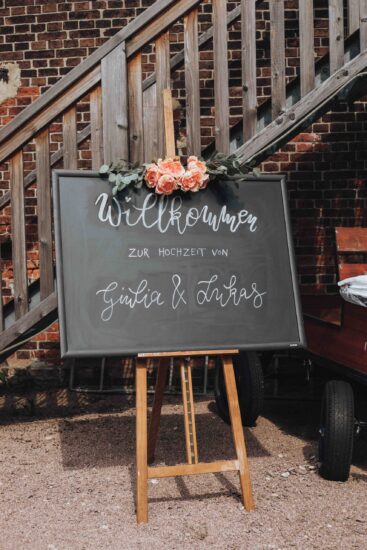 Willkommen
ZUR HOCHZEIT VON
Giulia & Lukas